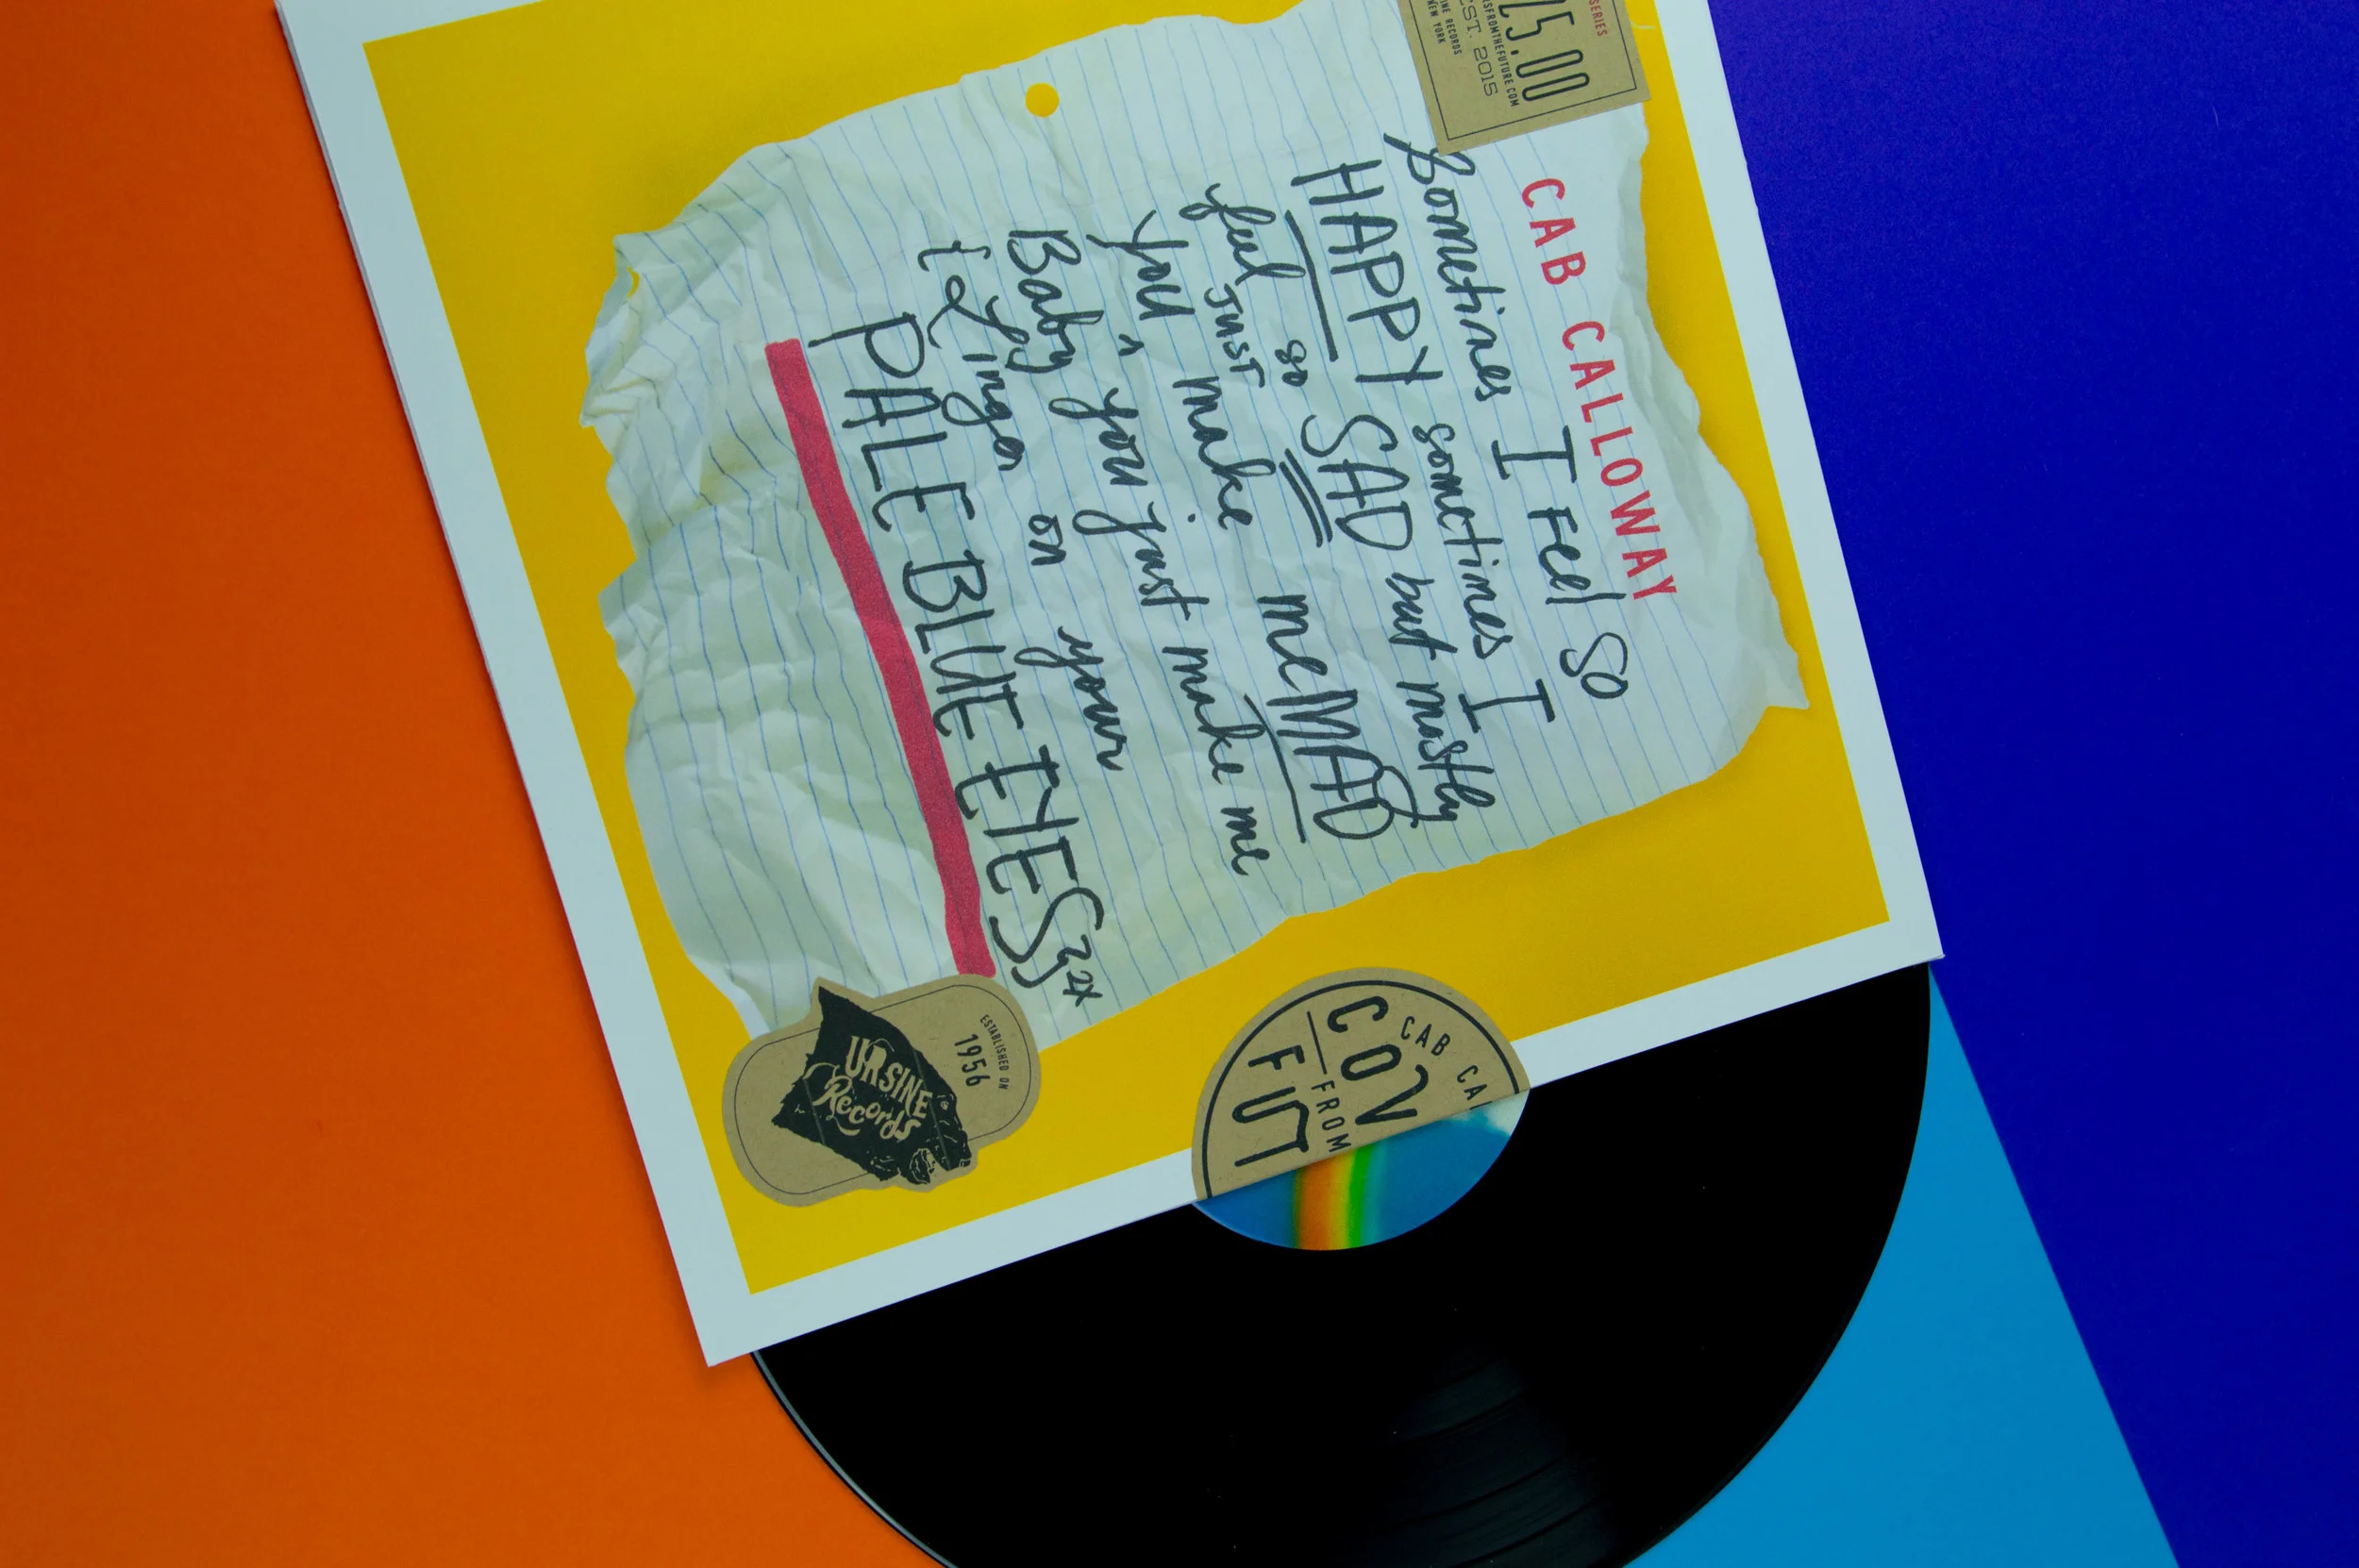 SERIES
25.00
SFROMTHEFUTURE.COM
EST. 2015
INE RECORDS
NEW YORK
CAB CALLOWAY
Sometimes I Feel So
HAPPY sometimes I
feel so SAD but mostly
you JUST make me MAD
Baby you just make me
{Linger on your
PALE BLUE EYES} 2x
CAB CAL
COV
FROM
FUT
ESTABLISHED ON
1956
URSINE
Records